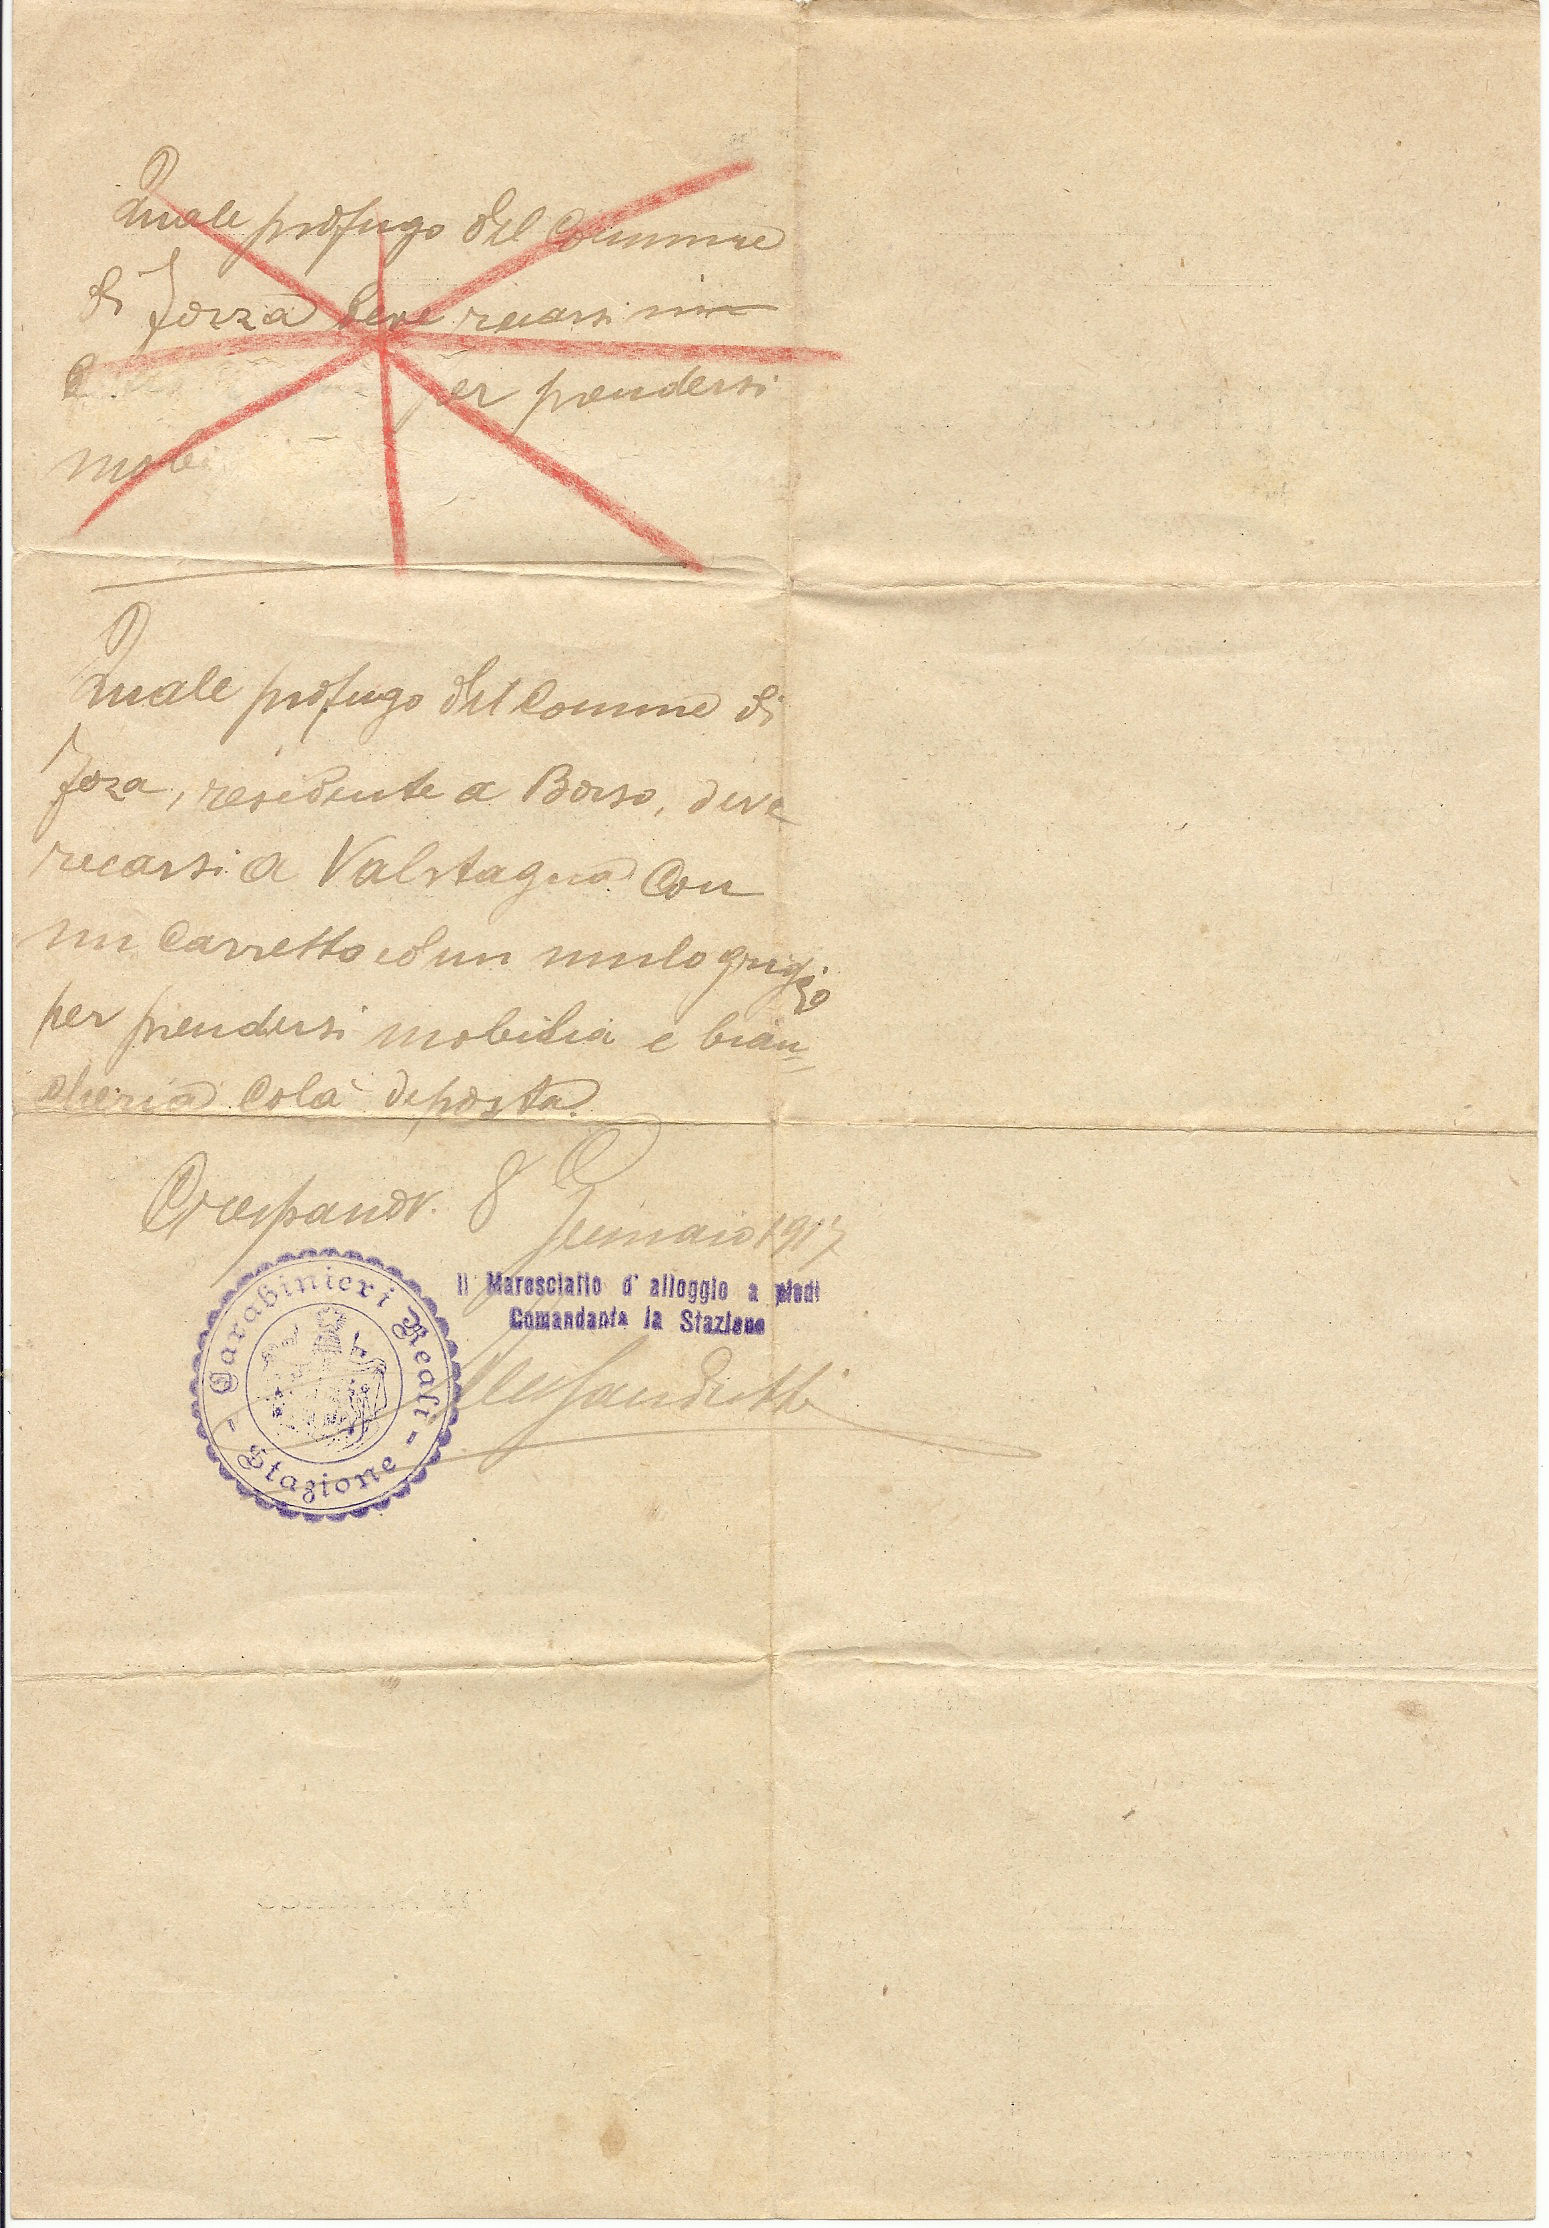 Quale profugo del Comune
di Foza deve recarsi
per prendersi
mobi
Quale profugo del Comune di
Foza, residente a Borso, deve
recarsi a Valstagna con
un carretto ed un mulo grigio
per prendersi mobilia e bian=
cheria colà deposta.
Crespano V. 8 Gennaio 1917
Carabinieri Reali
- Stazione -
Il Maresciallo d'alloggio a piedi
Comandante la Stazione
Alessandretti